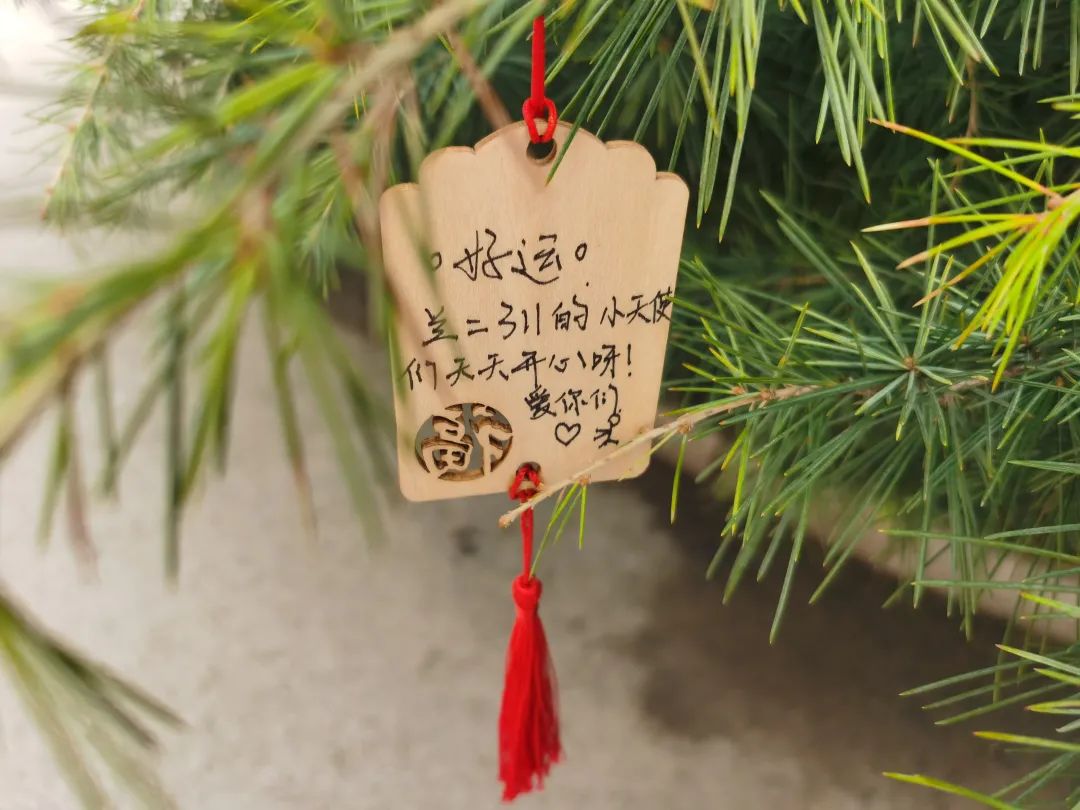 好运。
兰二引的小天使
们天天开心呀!
爱你们
♡
福